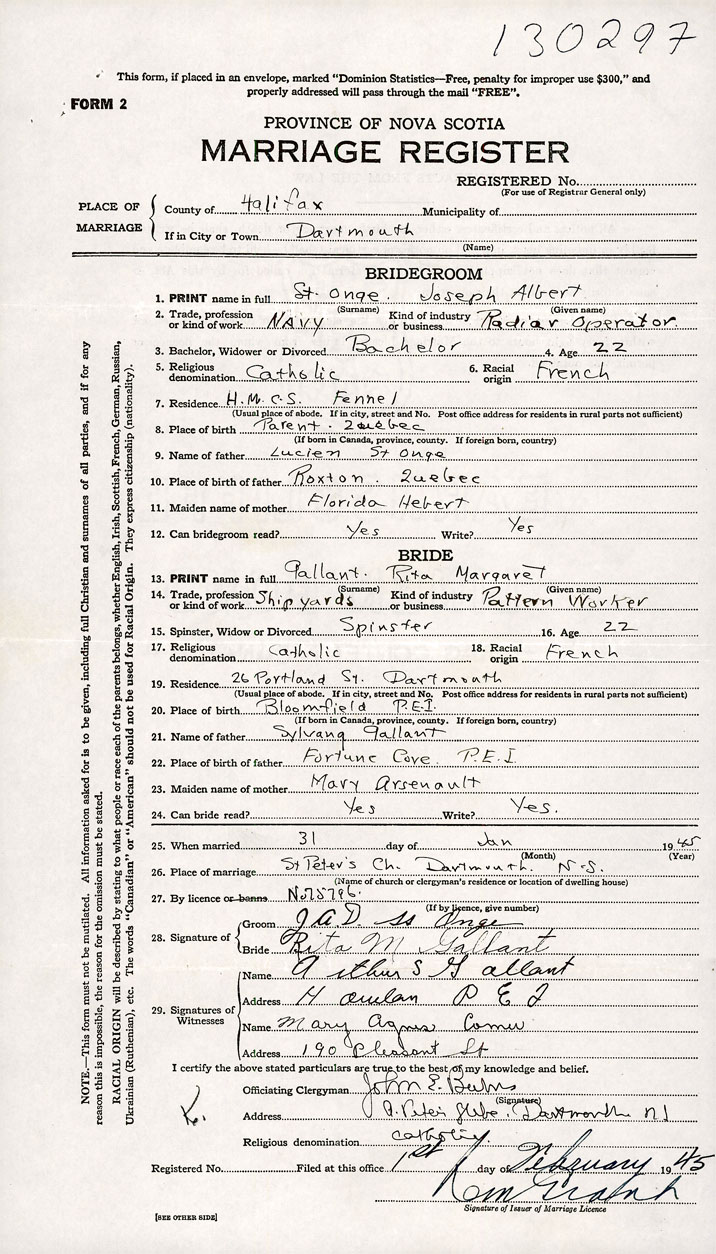 130297
This form, if placed in an envelope, marked "Dominion Statistics—Free, penalty for improper use $300," and
properly addressed will pass through the mail "FREE".
FORM 2
PROVINCE OF NOVA SCOTIA
MARRIAGE REGISTER
REGISTERED No.
(For use of Registrar General only)
PLACE OF MARRIAGE
County of Halifax Municipality of
If in City or Town Dartmouth
(Name)
BRIDEGROOM
1. PRINT name in full St. Onge. Joseph Albert
(Surname) (Given name)
2. Trade, profession or kind of work NAVY Kind of industry or business Radiar Operator.
3. Bachelor, Widower or Divorced Bachelor 4. Age 22
5. Religious denomination Catholic 6. Racial origin French
7. Residence H.M.C.S. Fennel
(Usual place of abode. If in city, street and No. Post office address for residents in rural parts not sufficient)
8. Place of birth Parent. Quebec
(If born in Canada, province, county. If foreign born, country)
9. Name of father Lucien St Onge
10. Place of birth of father Roxton. Quebec
11. Maiden name of mother Florida Hebert
12. Can bridegroom read? Yes Write? Yes
BRIDE
13. PRINT name in full Gallant. Rita Margaret
(Surname) (Given name)
14. Trade, profession or kind of work Shipyards Kind of industry or business Pattern Worker
15. Spinster, Widow or Divorced Spinster 16. Age 22
17. Religious denomination Catholic 18. Racial origin French
19. Residence 26 Portland St. Dartmouth
(Usual place of abode. If in city, street and No. Post office address for residents in rural parts not sufficient)
20. Place of birth Bloomfield P.E.I.
(If born in Canada, province, county. If foreign born, country)
21. Name of father Sylvang Gallant
22. Place of birth of father Fortune Cove. P.E.I.
23. Maiden name of mother Mary Arsenault
24. Can bride read? Yes Write? Yes.
25. When married 31 day of Jan 1945
(Month) (Year)
26. Place of marriage St Peter's Ch. Dartmouth. N.S.
(Name of church or clergyman's residence or location of dwelling house)
27. By licence or banns No.
(If by licence, give number)
28. Signature of
Groom J A D St Onge
Bride Rita M Gallant
29. Signatures of Witnesses
Name Arthur S Gallant
Address Howlan P E I
Name Mary Agnes
Address 190 Pleasant St
I certify the above stated particulars are true to the best of my knowledge and belief.
Officiating Clergyman John E. Burns
(Signature)
Address St. Peters Glebe. Dartmouth N.S
Religious denomination Catholic.
Registered No. Filed at this office 1st day of February 1945
Signature of Issuer of Marriage Licence
[SEE OTHER SIDE]
NOTE.—This form must not be mutilated. All information asked for is to be given, including full Christian and surnames of all parties, and if for any
reason this is impossible, the reason for the omission must be stated.
RACIAL ORIGIN will be described by stating to what people or race each of the parents belongs, whether English, Irish, Scottish, French, German, Russian,
Ukrainian (Ruthenian), etc. The words "Canadian" or "American" should not be used for Racial Origin. They express citizenship (nationality).